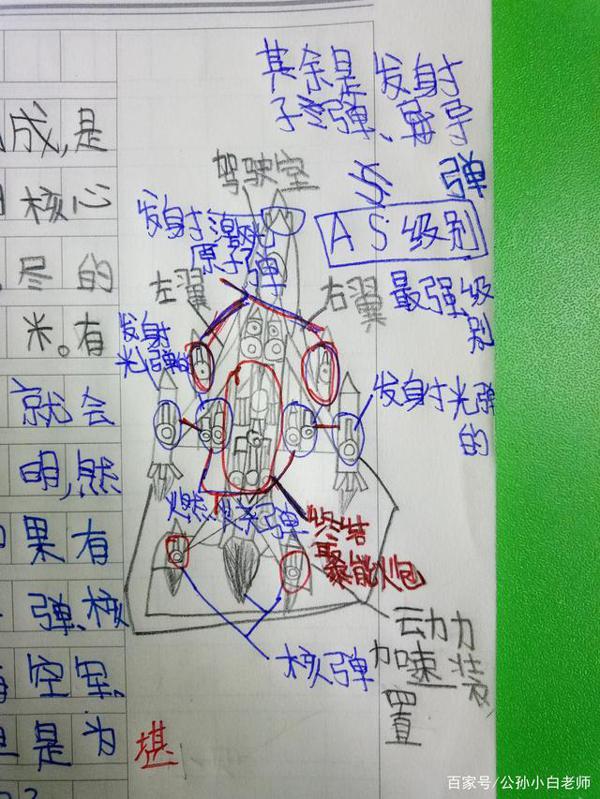 其余是发射
子空弹、
弹
AS级别
最强级
别
驾驶室
发射激光
原子弹
左翼
右翼
发射
光弹的
发射光弹
的
终结
聚能火包
核弹
动力
加速装
置
成,是
核心
尽的
米。有
就会
明,然
果有
弹、核
空军
是为
堪
百家号/公孙小白老师